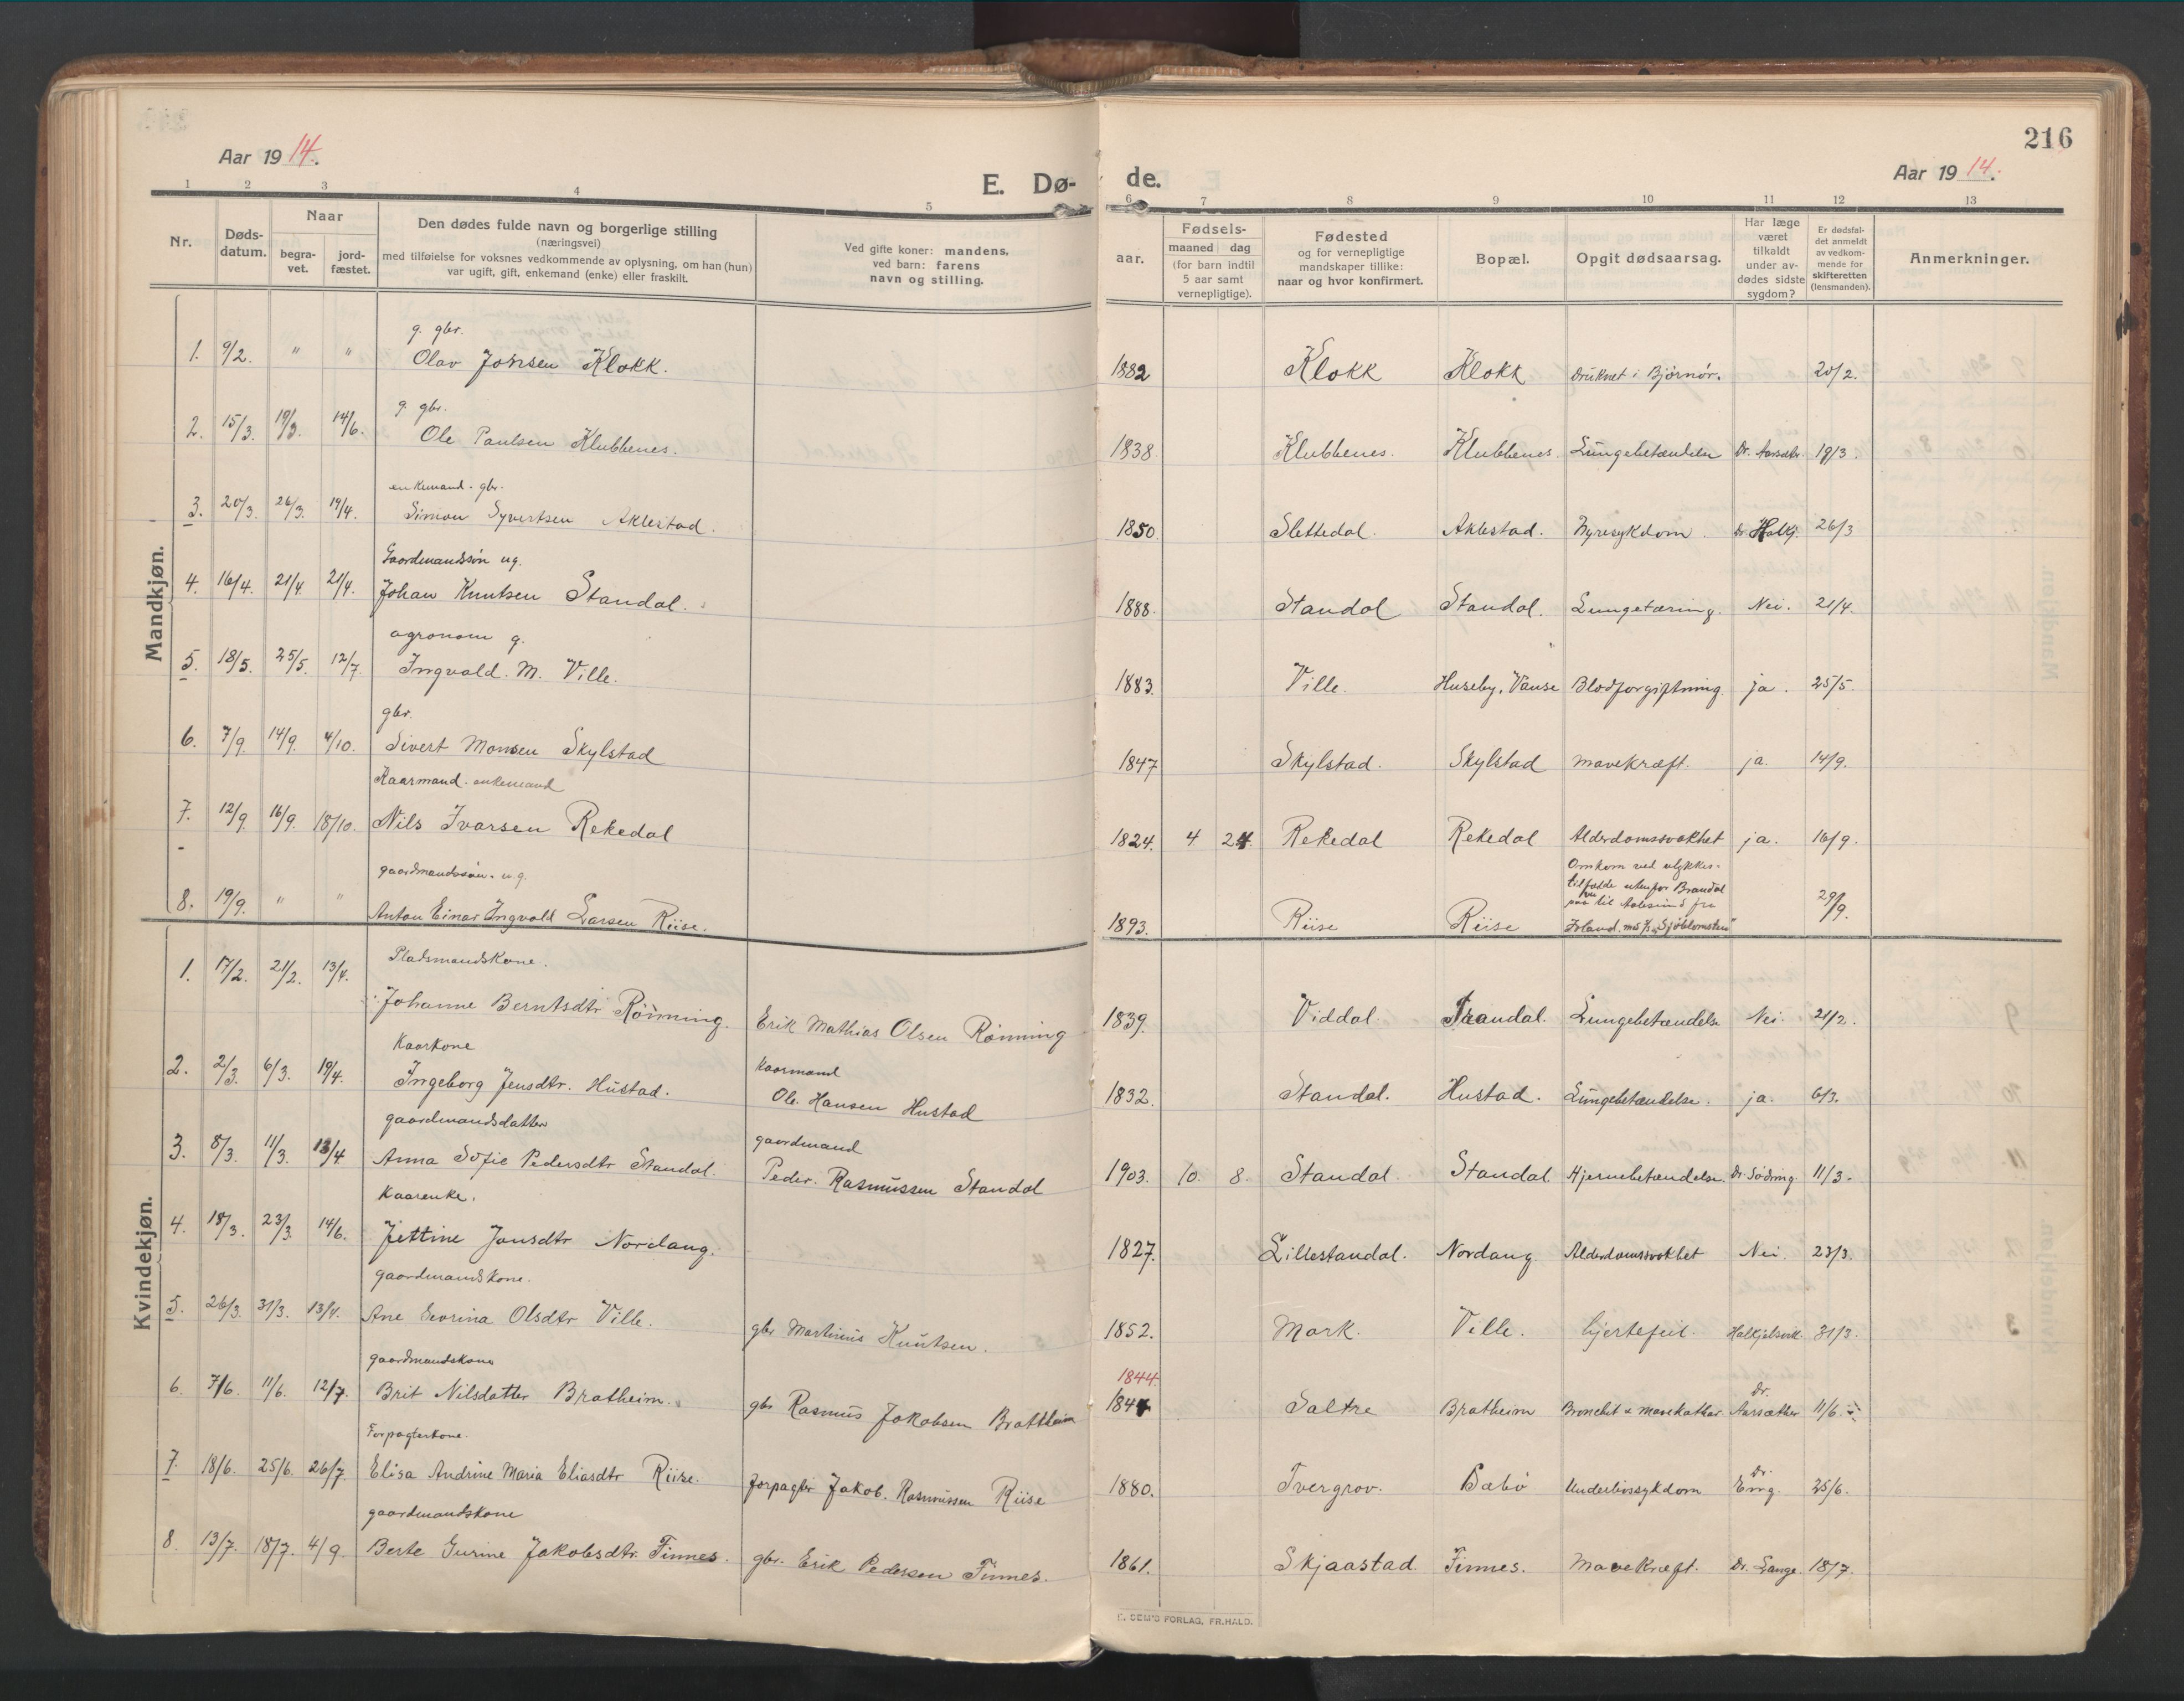 216
Aar 1914.
Aar 1914.
E. Dø- de.
1 2 3 4 5 6 7 8 9 10 11 12 13
Nr.
Døds-
datum.
Naar
begra-
vet.
jord-
fæstet.
Den dødes fulde navn og borgerlige stilling
(næringsvei)
med tilføielse for voksnes vedkommende av oplysning, om han (hun)
var ugift, gift, enkemand (enke) eller fraskilt.
Ved gifte koner: mandens,
ved barn: farens
navn og stilling.
aar.
Fødsels-
maaned dag
(for barn indtil
5 aar samt
vernepligtige).
Fødested
og for vernepligtige
mandskaper tillike:
naar og hvor konfirmert.
Bopæl.
Opgit dødsaarsag.
Har læge
været
tilkaldt
under av-
dødes sidste
sygdom?
Er dødsfal-
det anmeldt
av vedkom-
mende for
skifteretten
(lensmanden).
Anmerkninger.
Mandkjøn.
g. gbr.
1. 9/2. " " Olav Jonsen Klokk. 1882 Klokk Klokk Druknet i Bjørnør. 20/2.
g. gbr.
2. 15/3. 19/3. 14/6. Ole Paulsen Klubbenes. 1838 Klubbenes. Klubbenes. Lungebetændelse Dr. Aarsæthr. 19/3.
enkemand. gbr.
3. 20/3. 26/3. 19/4. Simon Syvertsen Aklestad. 1850. Slettedal. Aklestad. Nyresykdom. Dr. Halkj. 26/3
Gaardmandssøn ug.
4. 16/4. 21/4. 21/4. Johan Knutsen Standal. 1888. Standal Standal. Lungetæring. Nei. 21/4.
agronom g.
5. 18/5. 25/5. 12/7. Ingvald. M. Ville. 1883. Ville. Huseby, Vanse Blodforgiftning. ja. 25/5.
gbr.
6. 7/9. 14/9. 4/10. Sivert Monsen Skylstad 1847 Skylstad. Skylstad mavekræft. ja. 14/9.
Kaarmand. enkemand
7. 12/9. 16/9. 18/10. Nils Ivarsen Rekedal 1824. 4 24. Rekedal Rekedal Alderdomssvakhet ja. 16/9.
gaardmandssøn. u.g.
8. 19/9. " " Anton Einar Ingvald Larsen Riise. 1893. Riise Riise Omkom ved ulykkes-
tilfælde utenfor Brandal
paa vei til Aalesund fra
Island. med "Sjöblomsten" 29/9.
Kvindekjøn.
Pladsmandskone.
1. 17/2. 21/2. 13/4. Johanne Berntsdtr Rønning. Erik Mathias Olsen Rønning 1839. Viddal. Trandal. Lungebetændelse Nei. 21/2.
Kaarkone Kaarmand
2. 2/3. 6/3. 19/4. Ingeborg Jensdtr. Hustad. Ole Hansen Hustad 1832. Standal. Hustad. Lungebetændelse. ja. 6/3.
gaardmandsdatter gaardmand
3. 8/3. 11/3. 13/4 Anna Sofie Pedersdtr Standal. Peder. Rasmussen Standal 1903. 10. 8. Standal. Standal. Hjernebetændelse. Dr. Söding. 11/3.
Kaarenke.
4. 18/3. 23/3. 14/6. Jettine Jonsdtr Nordang. 1827. Lillestandal. Nordang Alderdomssvakhet Nei. 23/3.
gaardmandskone.
5. 26/3. 31/3. 13/4. Ane Sevrina Olsdtr Ville. gbr Martinus Knutsen. 1852. Mork. Ville. hjertefeil. Halkjelsvik. 31/3.
gaardmandskone 1844. Dr.
6. 7/6. 11/6. 12/7. Brit Nilsdatter Bratheim. gbr Rasmus Jakobsen Brattheim 1844 Saltre Bratheim Bronchit & mavekathar. Aarsæther 11/6.
Forpagterkone. Dr.
7. 18/6. 25/6. 26/7. Elisa Andrine Maria Eliasdtr Riise. forpagter Jakob. Rasmussen Riise 1880. Tvergrov. Bæbø Underlivssykdom Eng. 25/6.
gaardmandskone
8. 13/7. 18/7. 4/9. Berte Gurine Jakobsdtr. Finnes. gbr. Erik Pedersen Finnes. 1861. Skjaastad. Finnes. Mavekræft. Dr. Lange. 18/7.
FORLAG, FR.HALD.